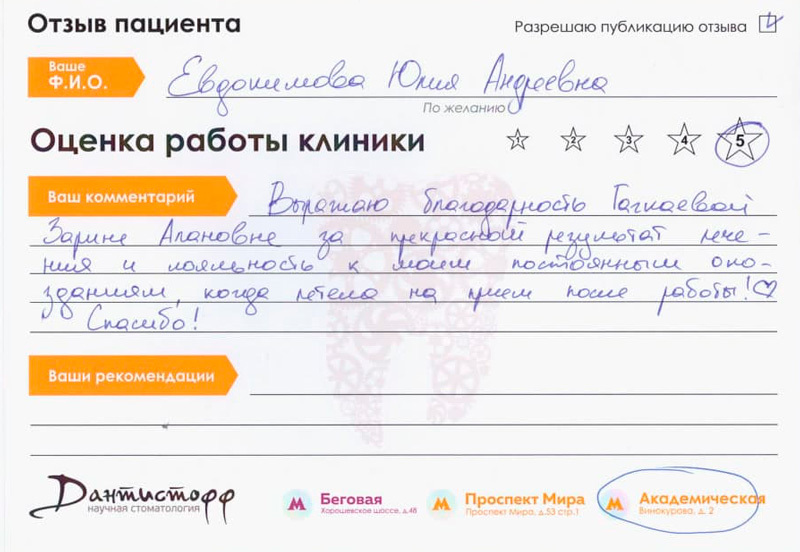 Отзыв пациента
Разрешаю публикацию отзыва
Ваше
Ф.И.О.
Евдокимова Юлия Андреевна
По желанию
Оценка работы клиники
1 2 3 4 5
Ваш комментарий
Выражаю благодарность Гагкаевой
Зарине Алановне за прекрасный результат лече-
ния и лояльность к моим постоянным опо-
зданиям, когда летела на прием после работы!♡
Спасибо!
Ваши рекомендации
Дантистофф
научная стоматология
Беговая
Хорошевское шоссе, д.48
Проспект Мира
Проспект Мира, д.53 стр.1
Академическая
Винокурова, д. 2